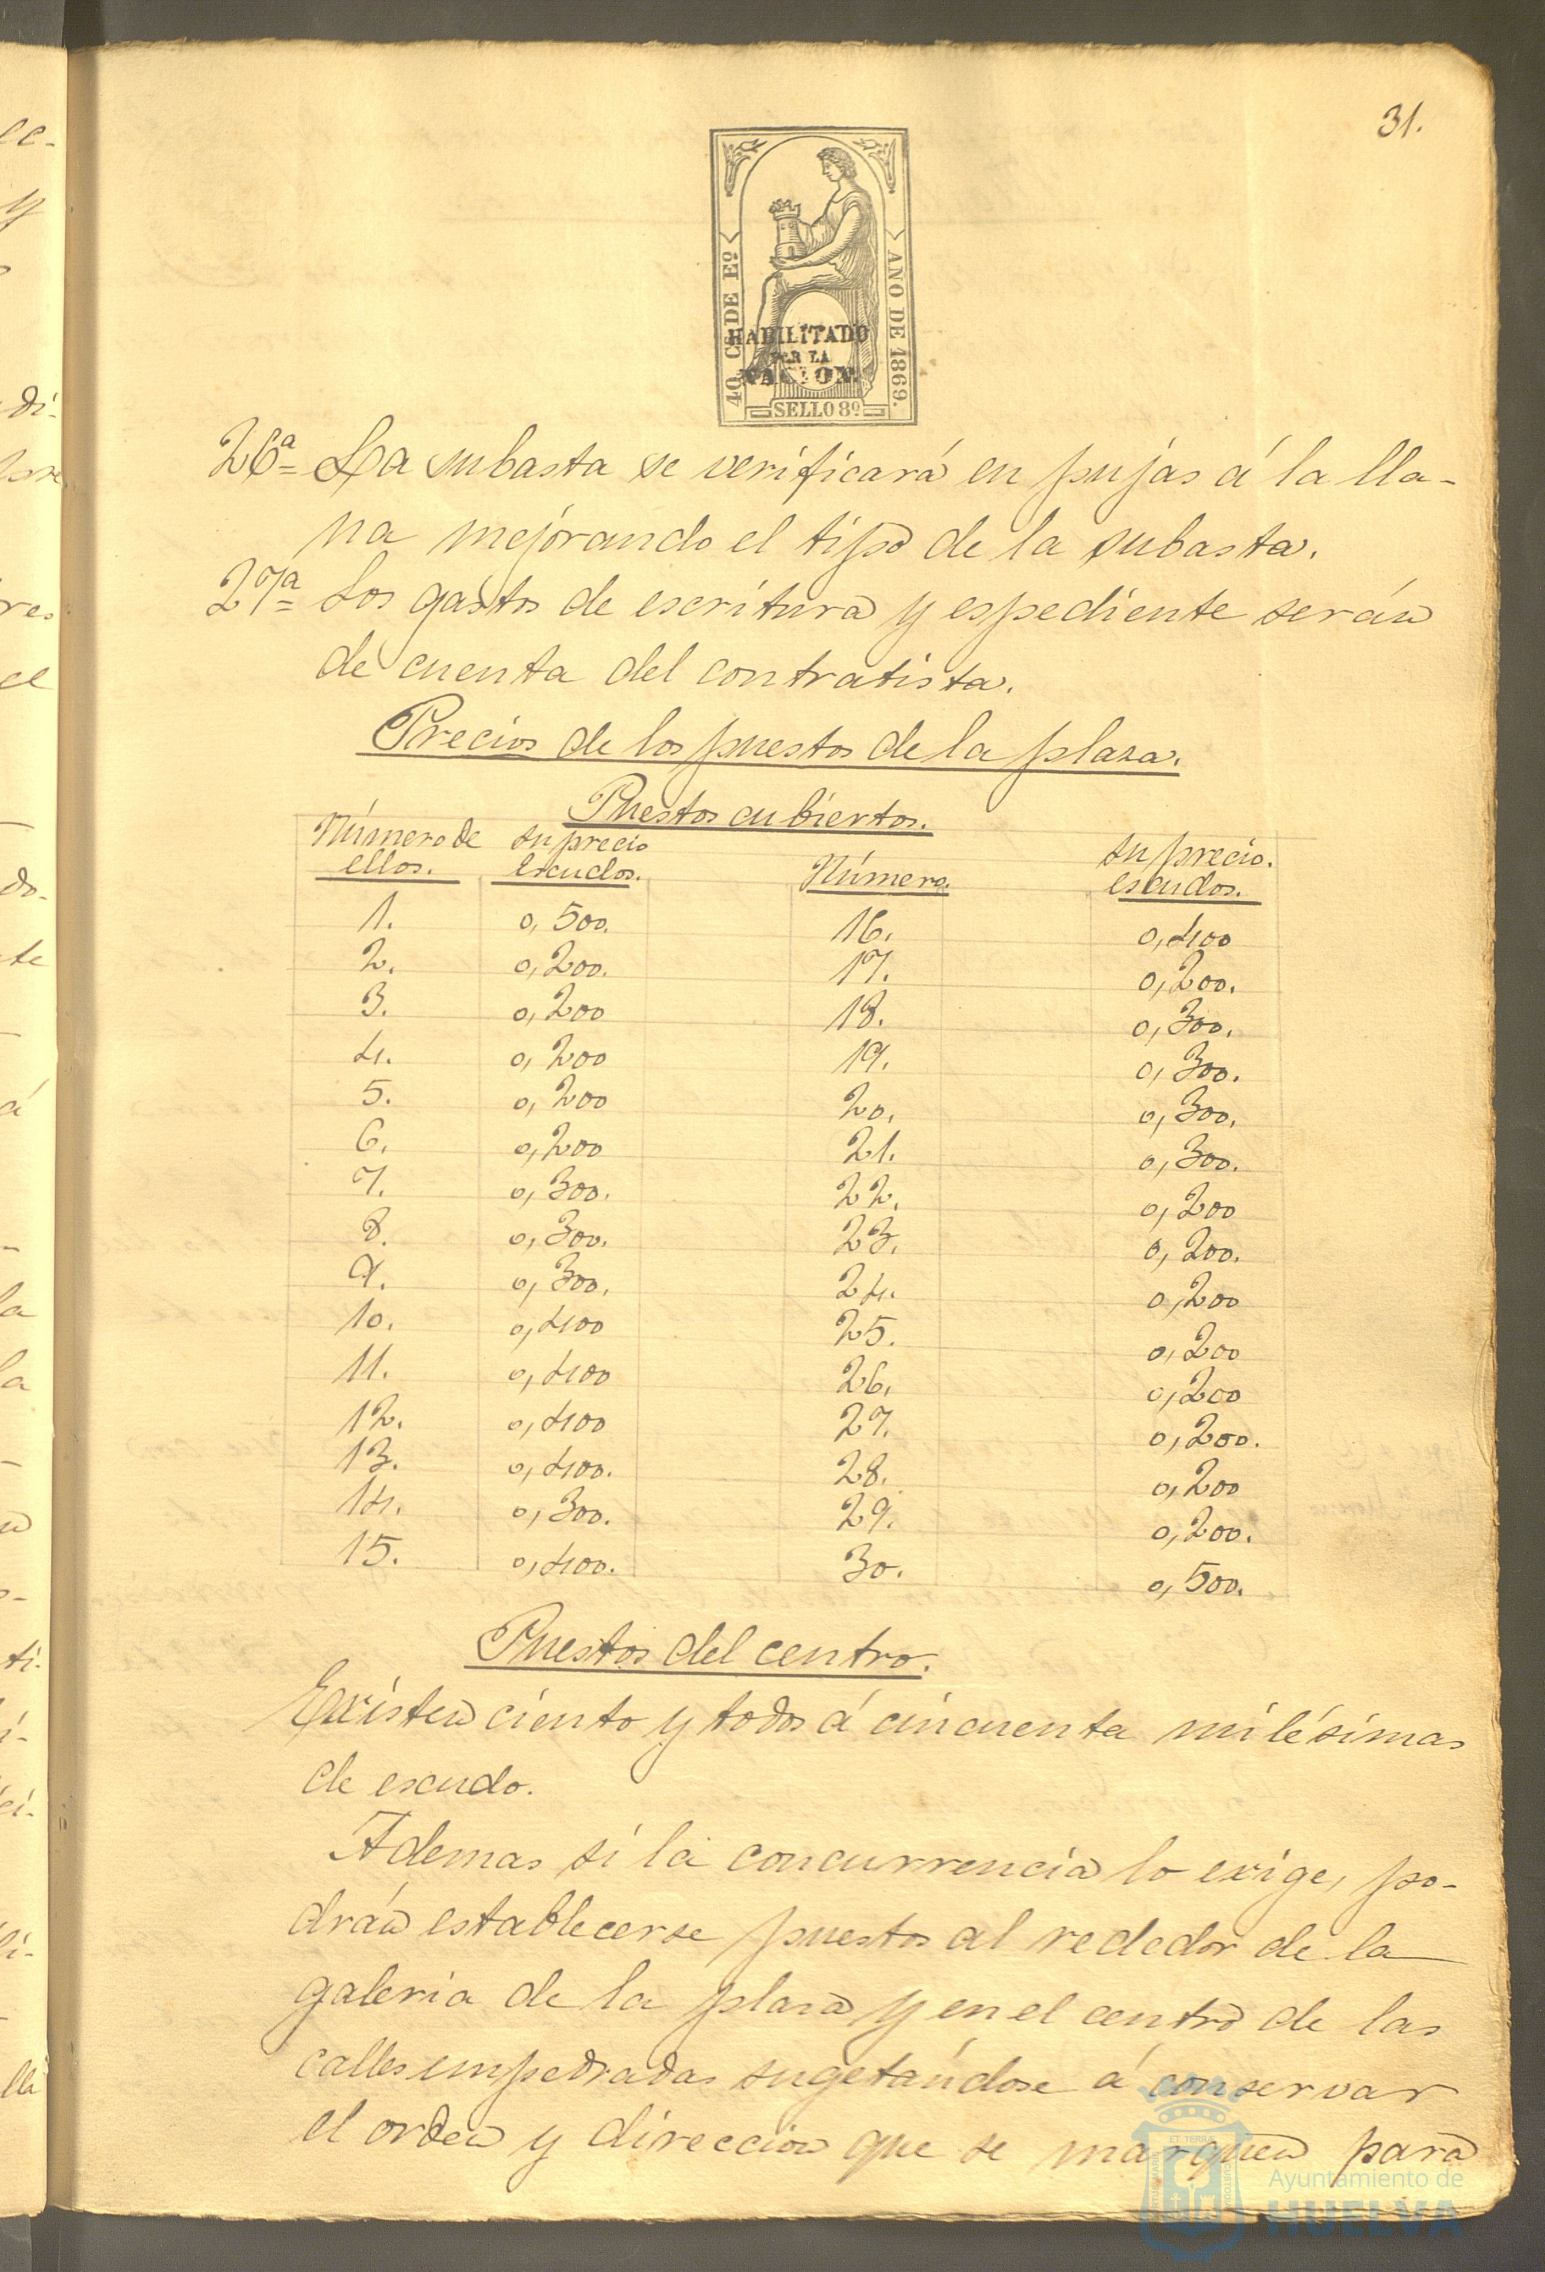 31.
40 Cs DE Eo
AÑO DE 1869.
HABILITADO
POR LA
NACION.
SELLO 8º
26ª La subasta se verificará en pujas á la lla-
na mejorando el tipo de la subasta.
27ª Los gastos de escritura y espediente serán
de cuenta del contratista.
Precios de los puestos de la plaza.
Puestos cubiertos.
Número de ellos. su precio escudos. Número. su precio. escudos.
1. 0,500. 16. 0,400
2. 0,200. 17. 0,200.
3. 0,200 18. 0,300.
4. 0,200 19. 0,300.
5. 0,200 20. 0,300.
6. 0,200 21. 0,300.
7. 0,300. 22. 0,200
8. 0,300. 23. 0,200.
9. 0,300. 24. 0,200
10. 0,400 25. 0,200
11. 0,400 26. 0,200
12. 0,400 27. 0,200.
13. 0,400. 28. 0,200
14. 0,300. 29. 0,200.
15. 0,400. 30. 0,500.
Puestos del centro.
Existen ciento y todos á cincuenta milésimas
de escudo.
Ademas si la concurrencia lo exige, po-
drán establecerse puestos al rededor de la
galeria de la plaza y en el centro de las
calles empedradas sugetándose á conservar
el orden y direccion que se marquen para
Ayuntamiento de
HUELVA